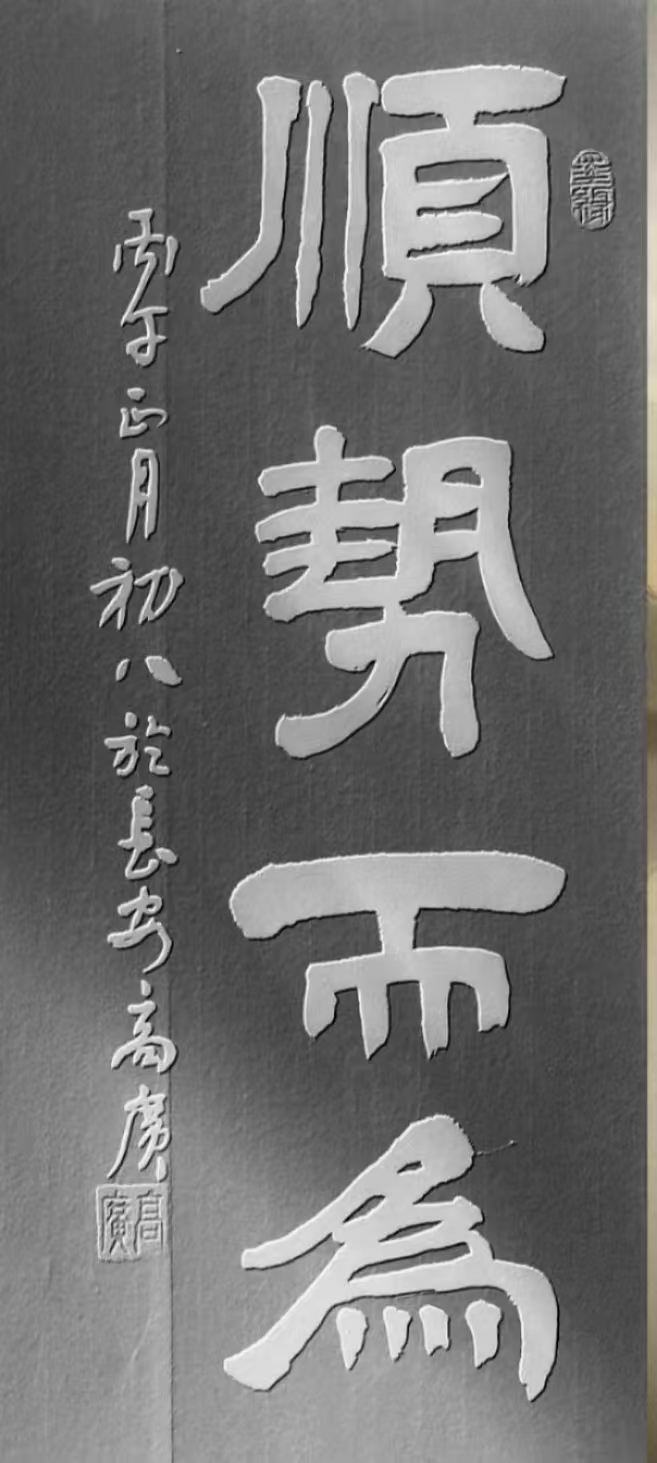 順勢而為
丙午正月初八於長安高廣
高廣